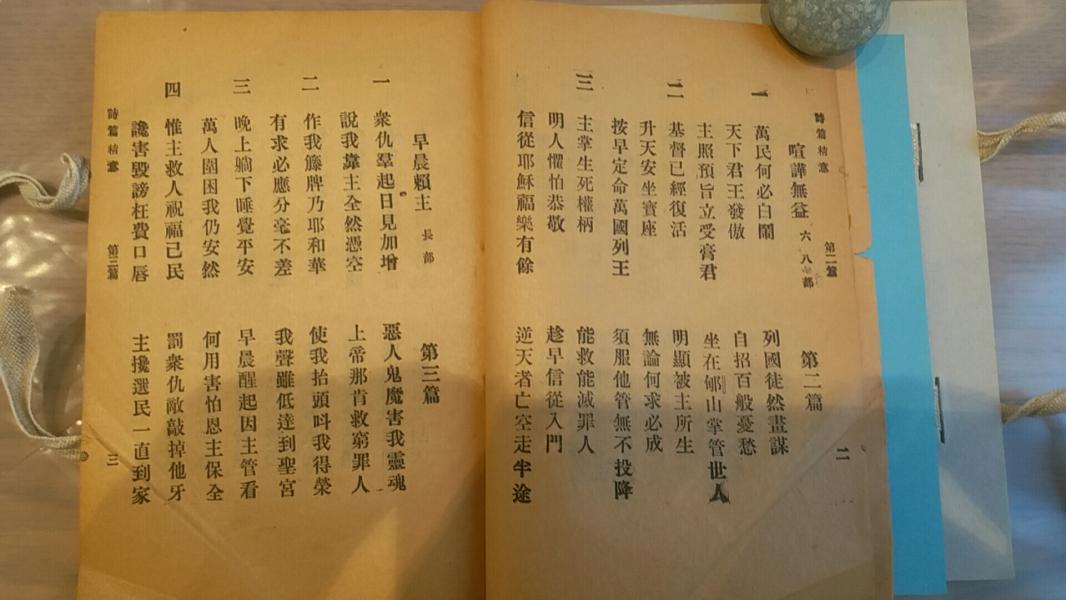 詩篇精意 第二篇 二
喧譁無益 六八七都 第二篇
一 萬民何必白鬧 列國徒然畫謀
天下君王發傲 自招百般憂愁
主照預旨立受膏君 坐在郇山掌管世人
二 基督已經復活 明顯被主所生
升天安坐寶座 無論何求必成
按早定命萬國列王 須服他管無不投降
三 主掌生死權柄 能救能滅罪人
明人懼怕恭敬 趁早信從入門
信從耶穌福樂有餘 逆天者亡空走半途
早晨賴主 長都 第三篇
一 衆仇羣起日見加增 惡人鬼魔害我靈魂
說我靠主全然憑空 上帝那肯救窮罪人
二 作我籐牌乃耶和華 使我抬頭呌我得榮
有求必應分毫不差 我聲雖低達到聖宮
三 晚上躺下睡覺平安 早晨醒起因主管看
萬人圍困我仍安然 何用害怕恩主保全
四 惟主救人祝福己民 罰衆仇敵敲掉他牙
讒害毀謗枉費口唇 主攙選民一直到家
詩篇精意 第三篇 三